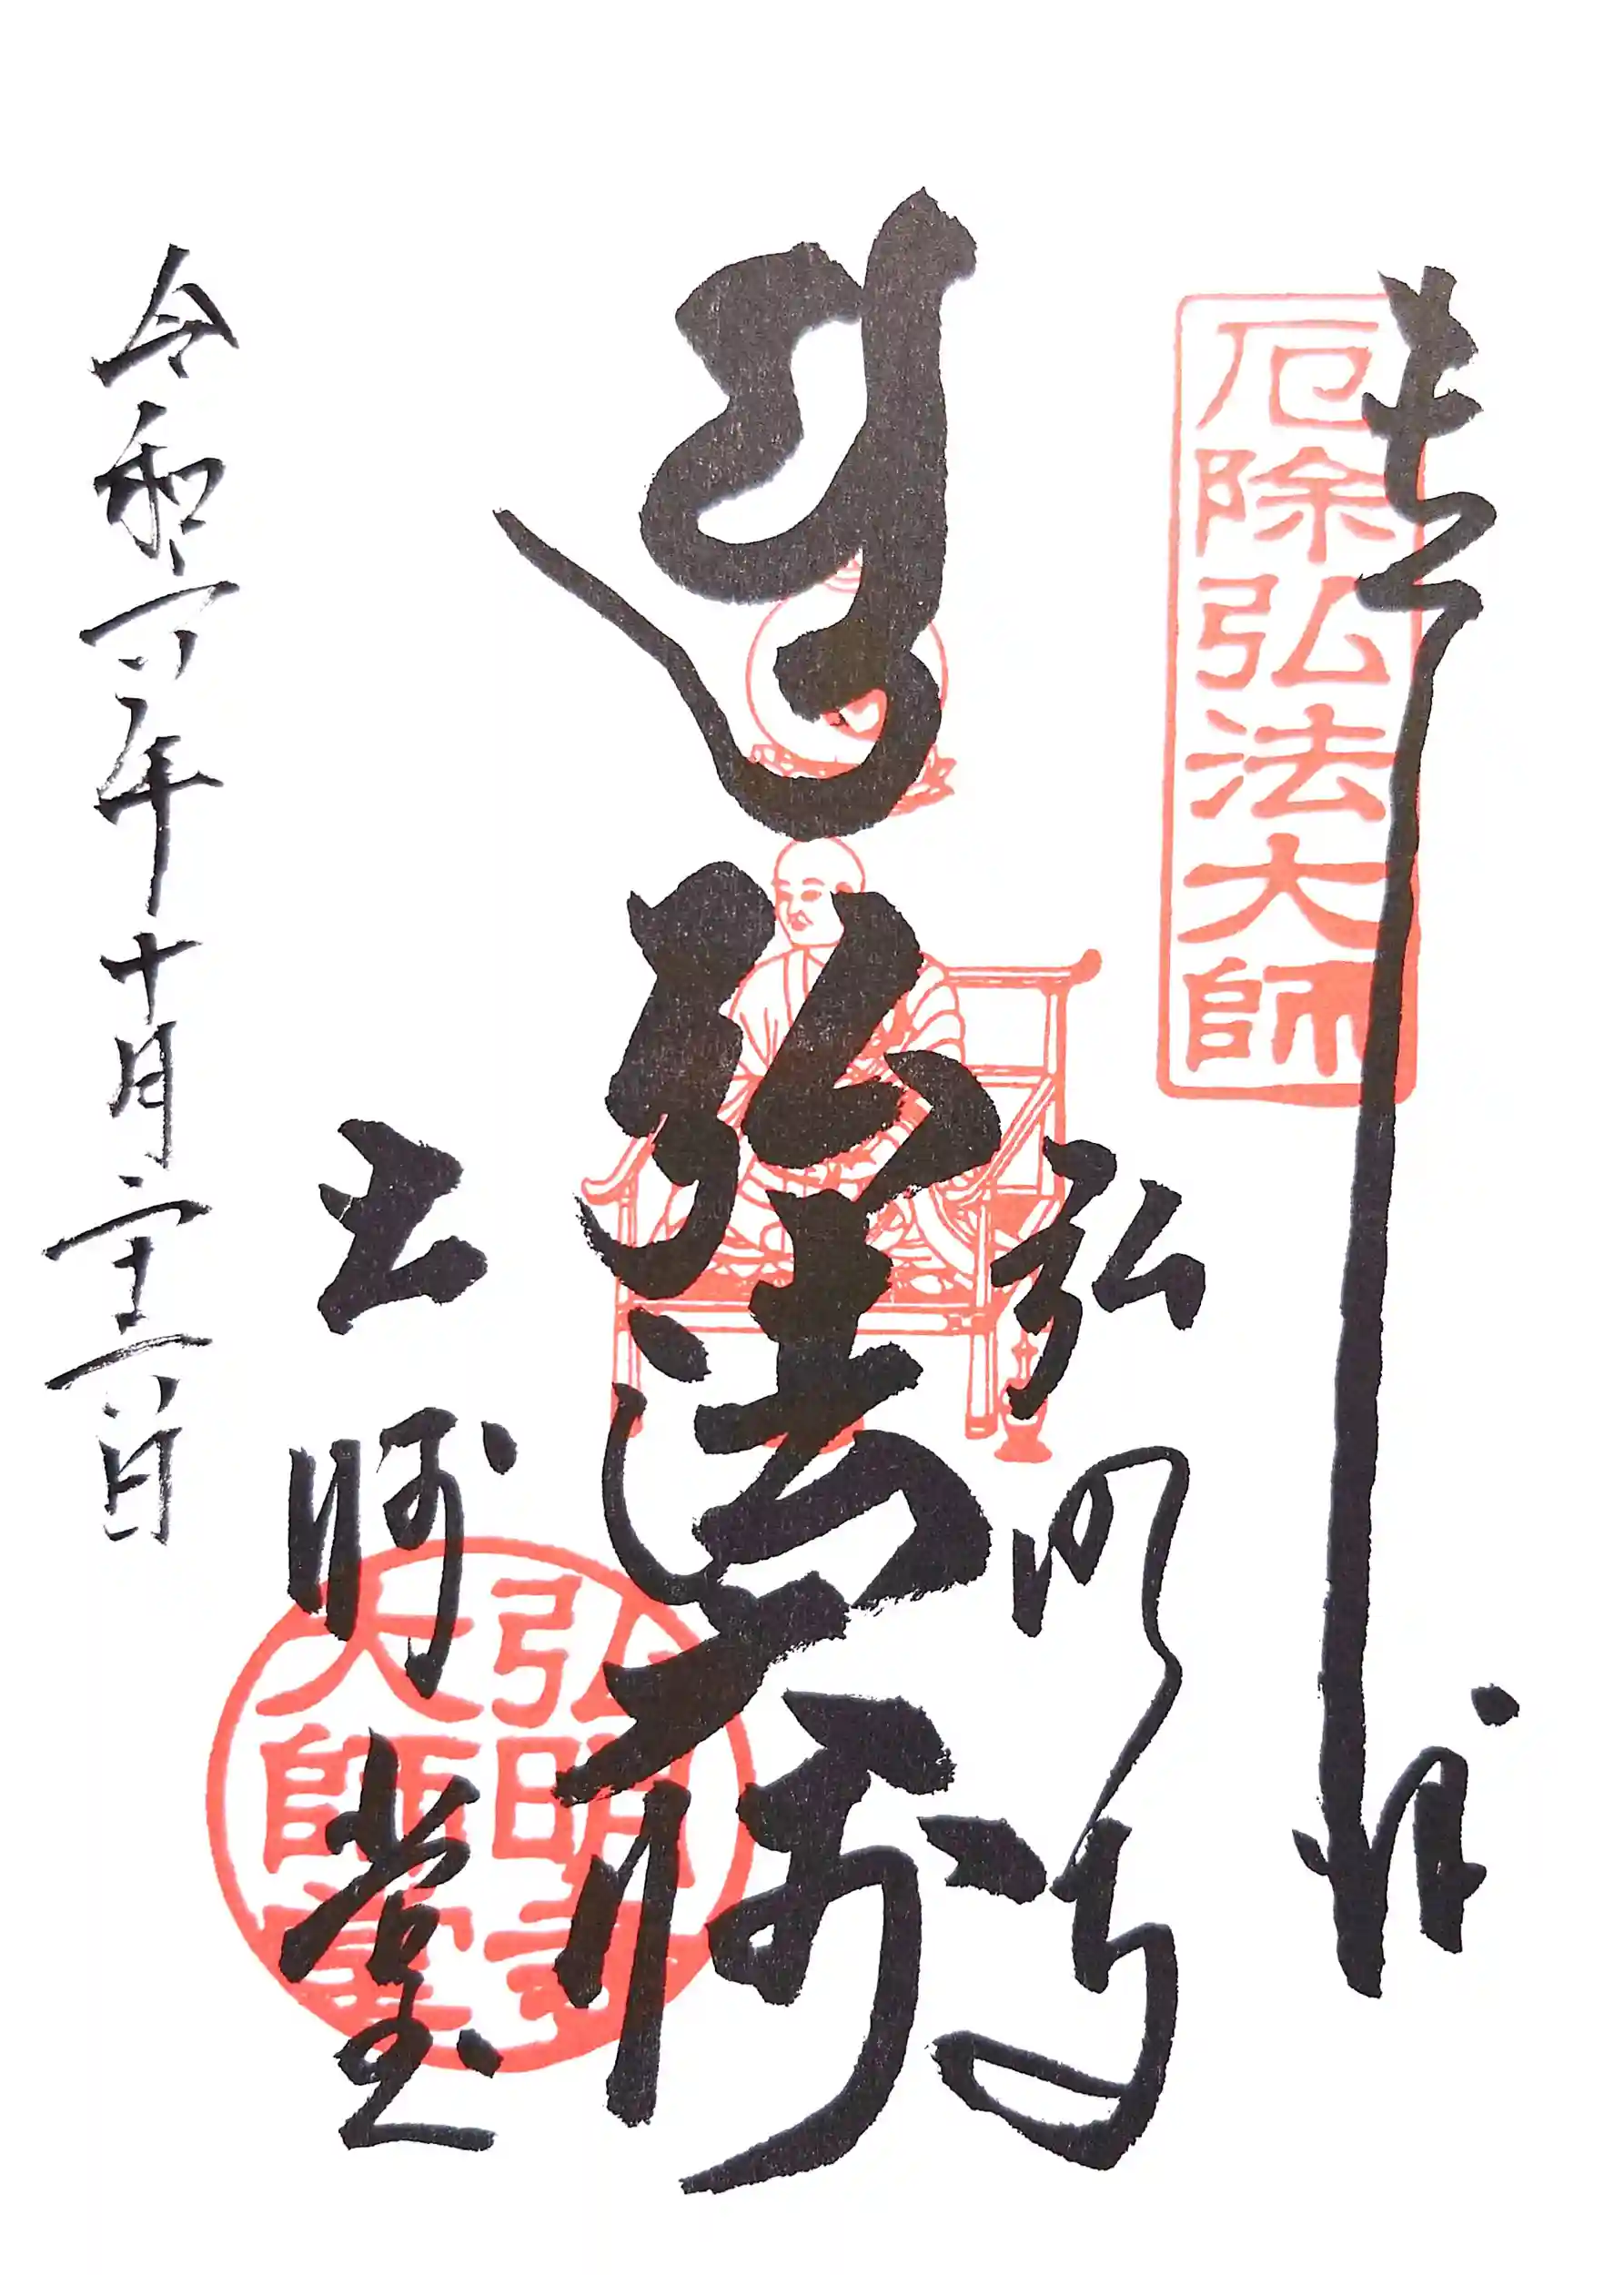 奉拝
厄除弘法大師
弘法大師
弘明寺
大師堂
弘明寺
大師堂
令和六年十月二十二日